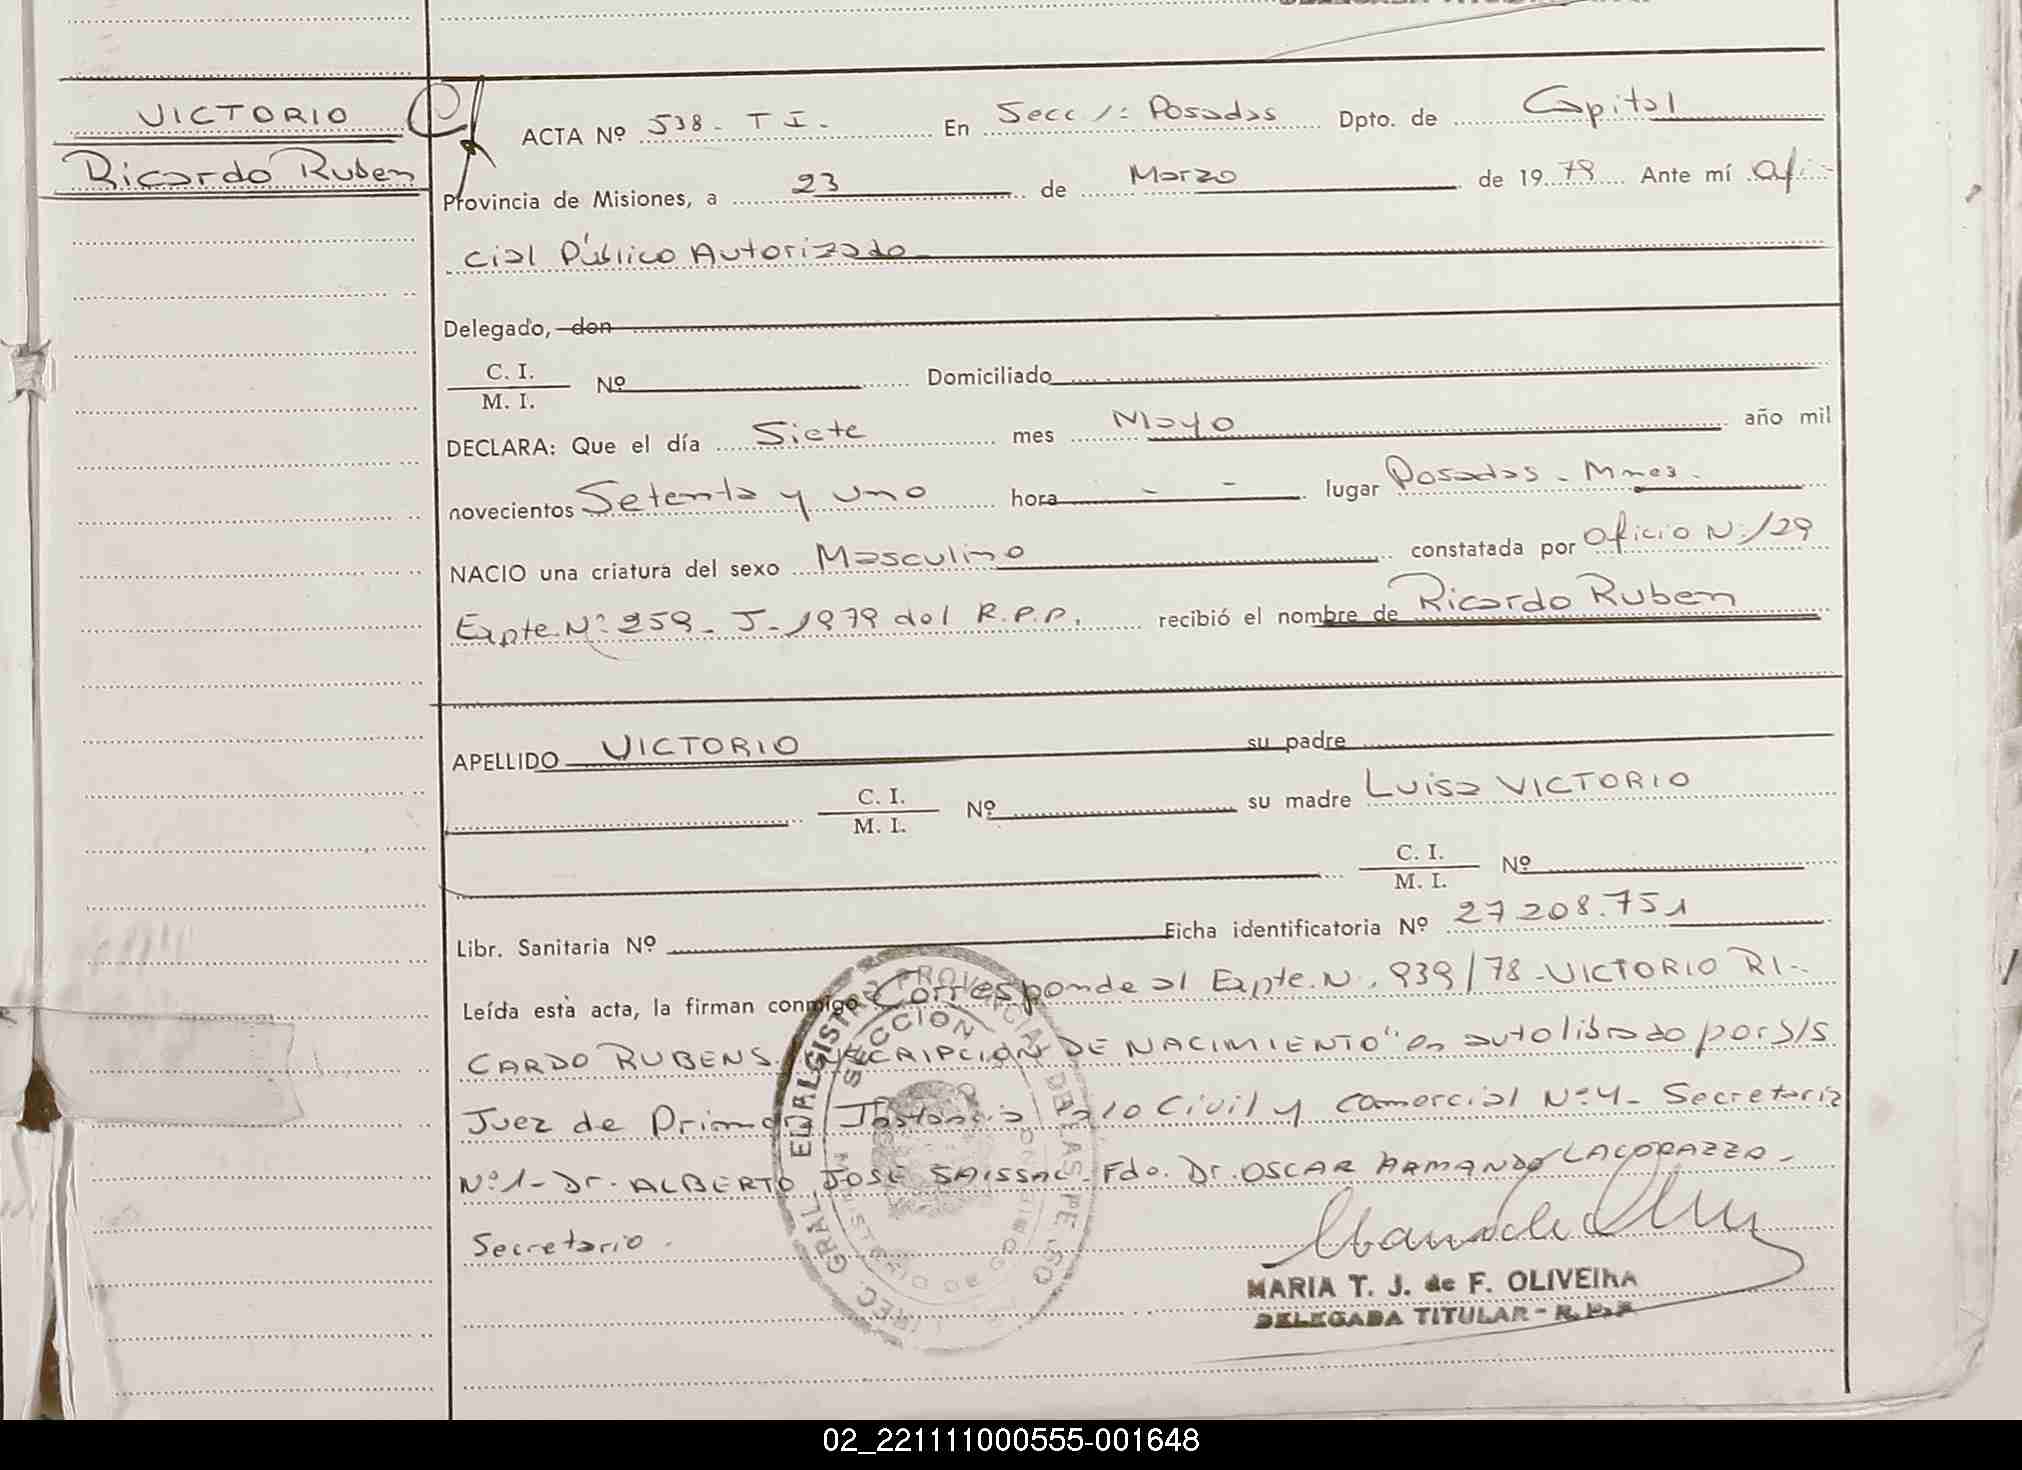 VICTORIO
Ricardo Ruben
ACTA Nº 538 - T I - En Secc 1ª Posadas Dpto. de Capital
Provincia de Misiones, a 23 de Marzo de 1979 Ante mí Ofi-
cial Público Autorizado
Delegado, don
C. I.
M. I. Nº Domiciliado
DECLARA: Que el día Siete mes Mayo año mil
novecientos Setenta y uno hora - - lugar Posadas - Mnes.
NACIO una criatura del sexo Masculino constatada por Oficio Nº 129
Expte. Nº 259 - J - 1979 del R.P.P. recibió el nombre de Ricardo Ruben
APELLIDO VICTORIO su padre
C. I.
M. I. Nº su madre Luisa VICTORIO
C. I.
M. I. Nº
Libr. Sanitaria Nº Ficha identificatoria Nº 27 208.751
Leída esta acta, la firman conmigo Corresponde al Expte. N. 939/78 - VICTORIO RI-
CARDO RUBENS. INSCRIPCION DE NACIMIENTO" en auto librado por S/S
Juez de Primera Instancia en lo Civil y Comercial Nº 4 - Secretaria
Nº 1 - Dr. ALBERTO JOSE SAISSAC - Fdo. Dr. OSCAR ARMANDO LACORAZZO -
Secretario.
MARIA T. J. de F. OLIVEIRA
DELEGADA TITULAR - R. P. P.
02_221111000555-001648